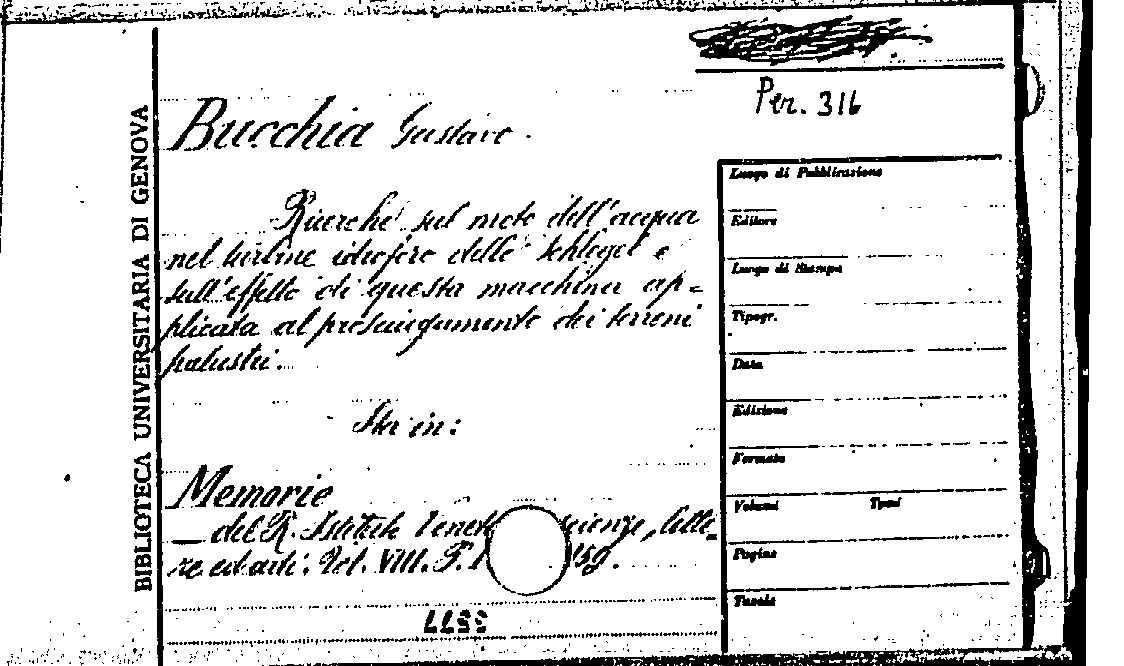 Per. 316
BIBLIOTECA UNIVERSITARIA DI GENOVA
Bucchia Gustavo.
Ricerche sul moto dell'acqua
nel turbine idroforo dello Schlegel e
sull'effetto di questa macchina ap=
plicata al prosciugamento dei terreni
palustri.
Sta in:
Memorie
del R. Istituto Veneto scienze, lette=
re ed arti. Vol. VIII. P. 159.
Luogo di Pubblicazione
Editore
Luogo di Stampa
Tipogr.
Data
Edizione
Formato
Volumi Tomi
Pagine
Tavole